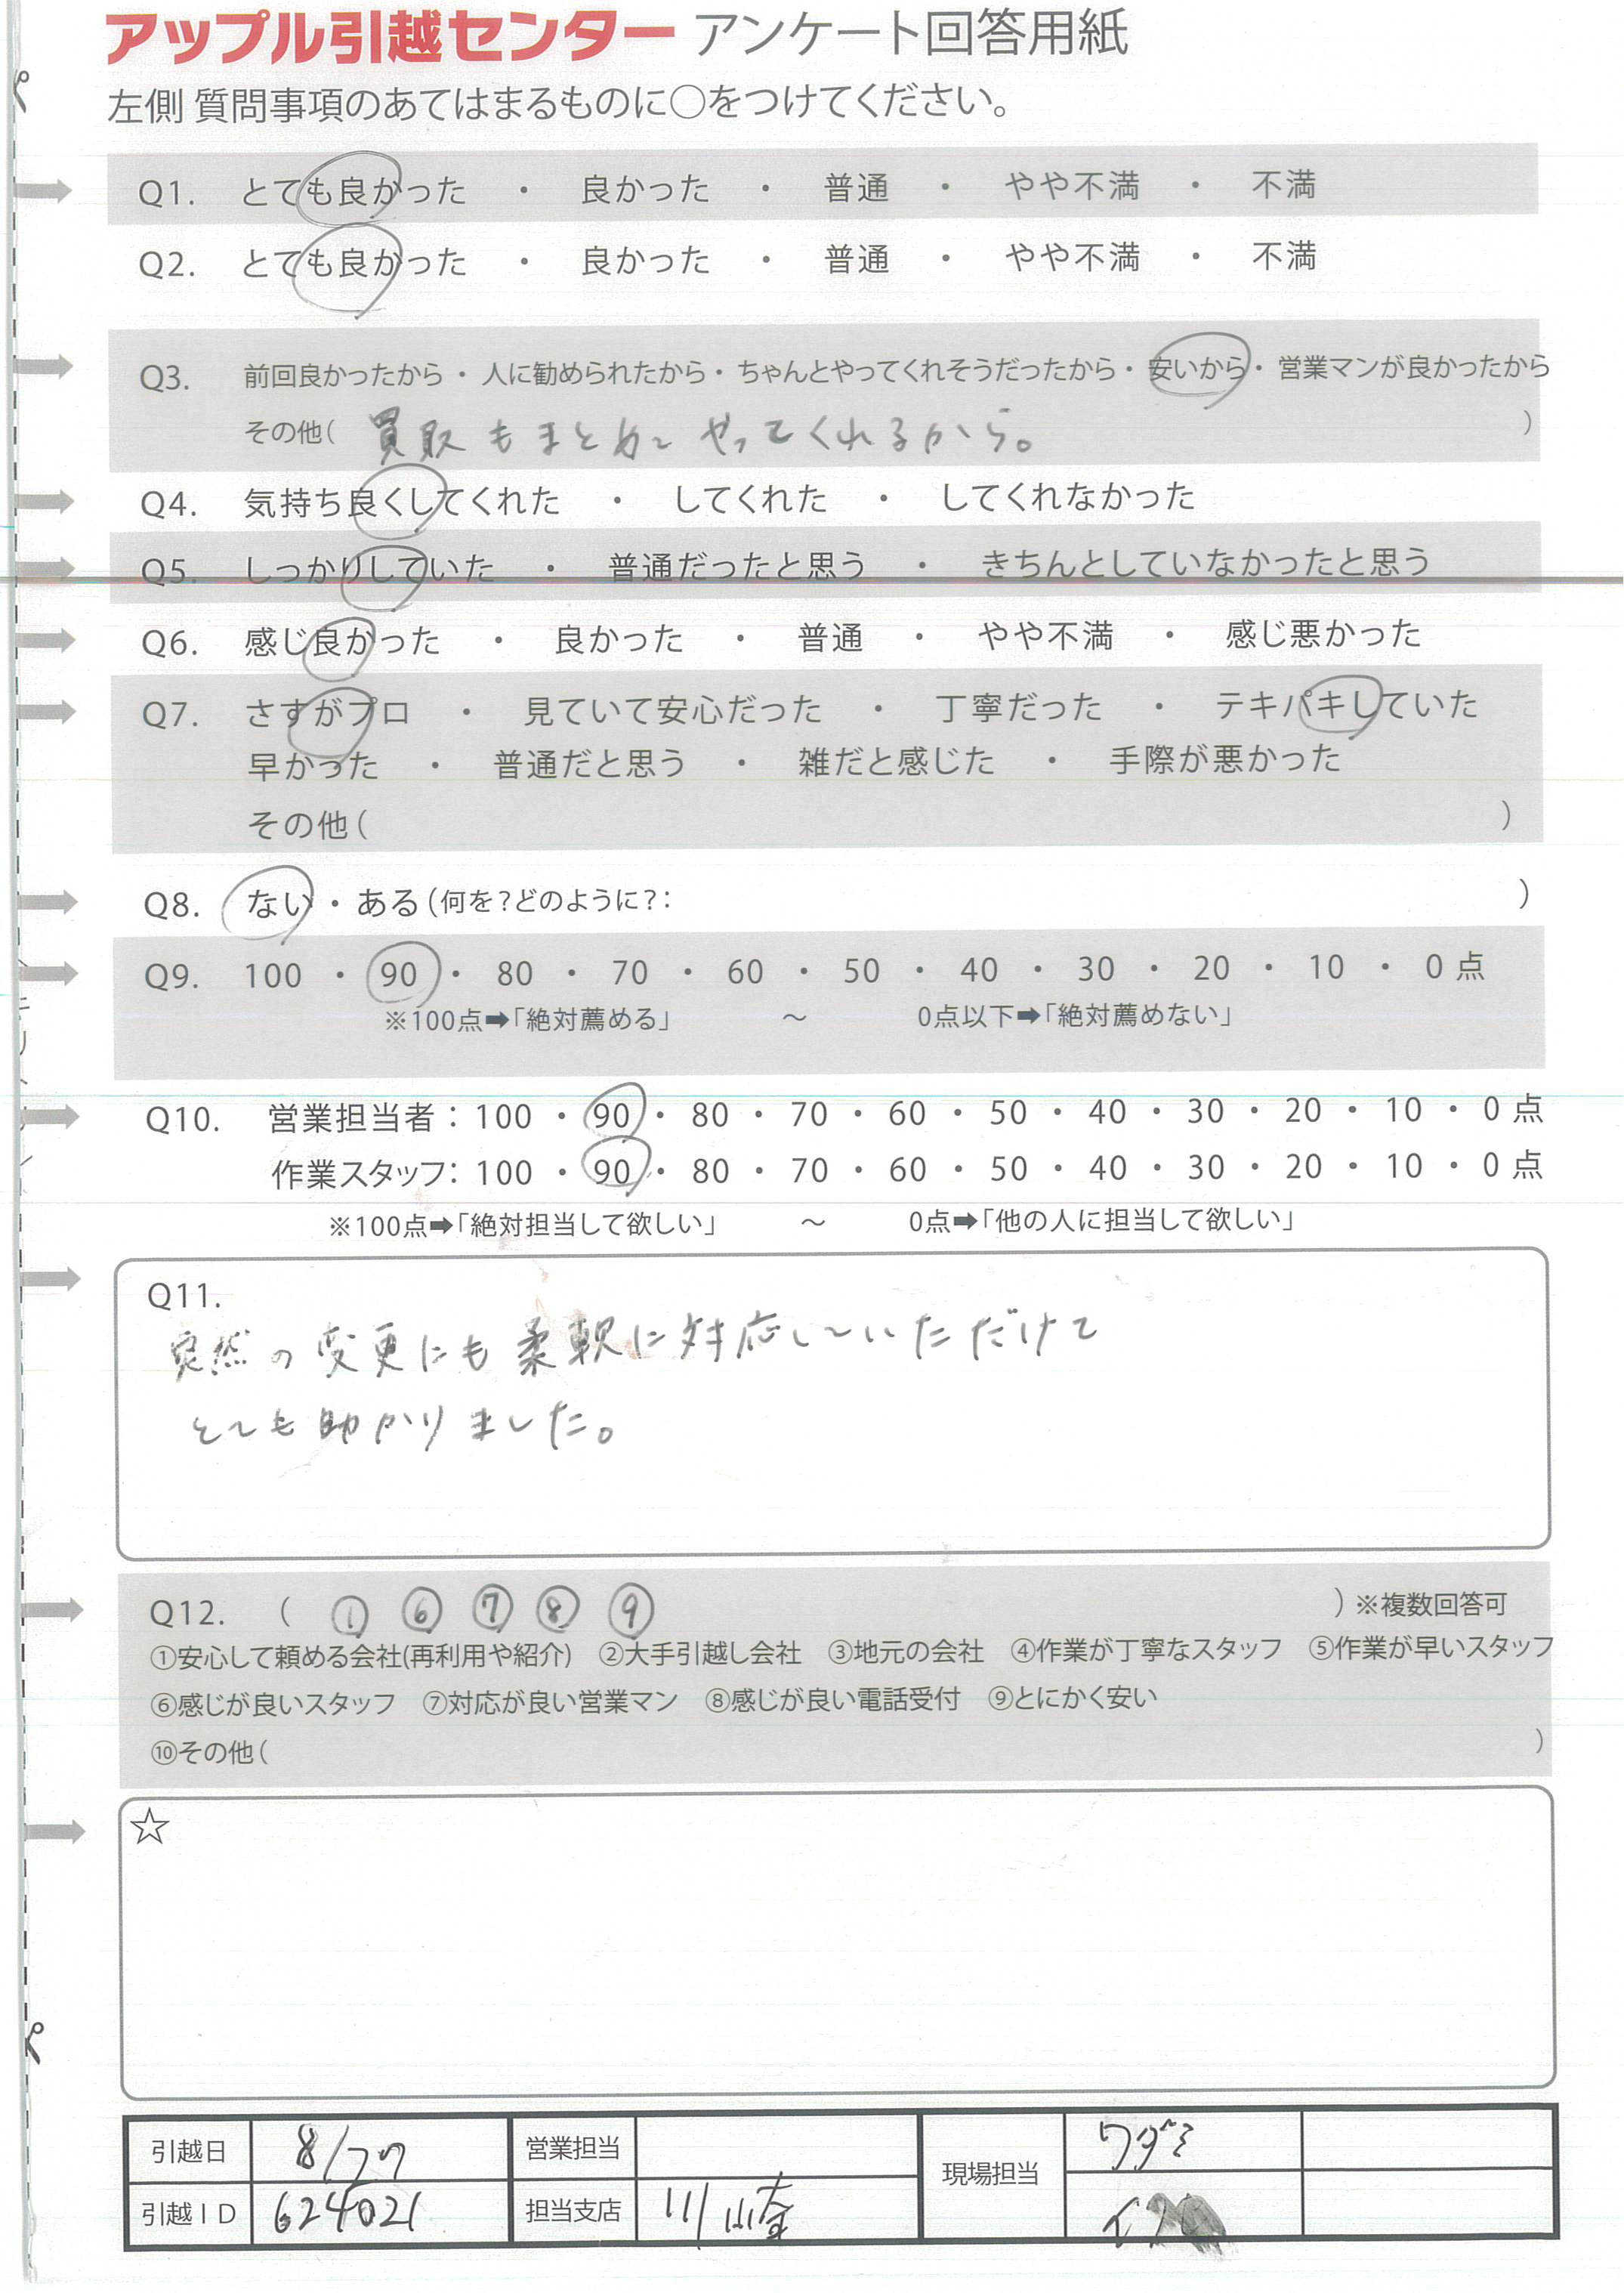 アップル引越センター アンケート回答用紙
左側 質問事項のあてはまるものに○をつけてください。
Q1. とても良かった ・ 良かった ・ 普通 ・ やや不満 ・ 不満
Q2. とても良かった ・ 良かった ・ 普通 ・ やや不満 ・ 不満
Q3. 前回良かったから ・ 人に勧められたから ・ ちゃんとやってくれそうだったから ・ 安いから ・ 営業マンが良かったから
その他( 買取もまとめてやってくれるから。 )
Q4. 気持ち良くしてくれた ・ してくれた ・ してくれなかった
Q5. しっかりしていた ・ 普通だったと思う ・ きちんとしていなかったと思う
Q6. 感じ良かった ・ 良かった ・ 普通 ・ やや不満 ・ 感じ悪かった
Q7. さすがプロ ・ 見ていて安心だった ・ 丁寧だった ・ テキパキしていた
早かった ・ 普通だと思う ・ 雑だと感じた ・ 手際が悪かった
その他( )
Q8. ない ・ ある (何を?どのように?: )
Q9. 100 ・ 90 ・ 80 ・ 70 ・ 60 ・ 50 ・ 40 ・ 30 ・ 20 ・ 10 ・ 0 点
※100点➡「絶対薦める」 ～ 0点以下➡「絶対薦めない」
Q10. 営業担当者：100 ・ 90 ・ 80 ・ 70 ・ 60 ・ 50 ・ 40 ・ 30 ・ 20 ・ 10 ・ 0 点
作業スタッフ：100 ・ 90 ・ 80 ・ 70 ・ 60 ・ 50 ・ 40 ・ 30 ・ 20 ・ 10 ・ 0 点
※100点➡「絶対担当して欲しい」 ～ 0点➡「他の人に担当して欲しい」
Q11.
突然の変更にも柔軟に対応していただけて
とても助かりました。
Q12. ( ① ⑥ ⑦ ⑧ ⑨ ) ※複数回答可
①安心して頼める会社(再利用や紹介) ②大手引越し会社 ③地元の会社 ④作業が丁寧なスタッフ ⑤作業が早いスタッフ
⑥感じが良いスタッフ ⑦対応が良い営業マン ⑧感じが良い電話受付 ⑨とにかく安い
⑩その他( )
☆
引越日 8/27 営業担当 現場担当 ワダミ
引越ID 624021 担当支店 川崎